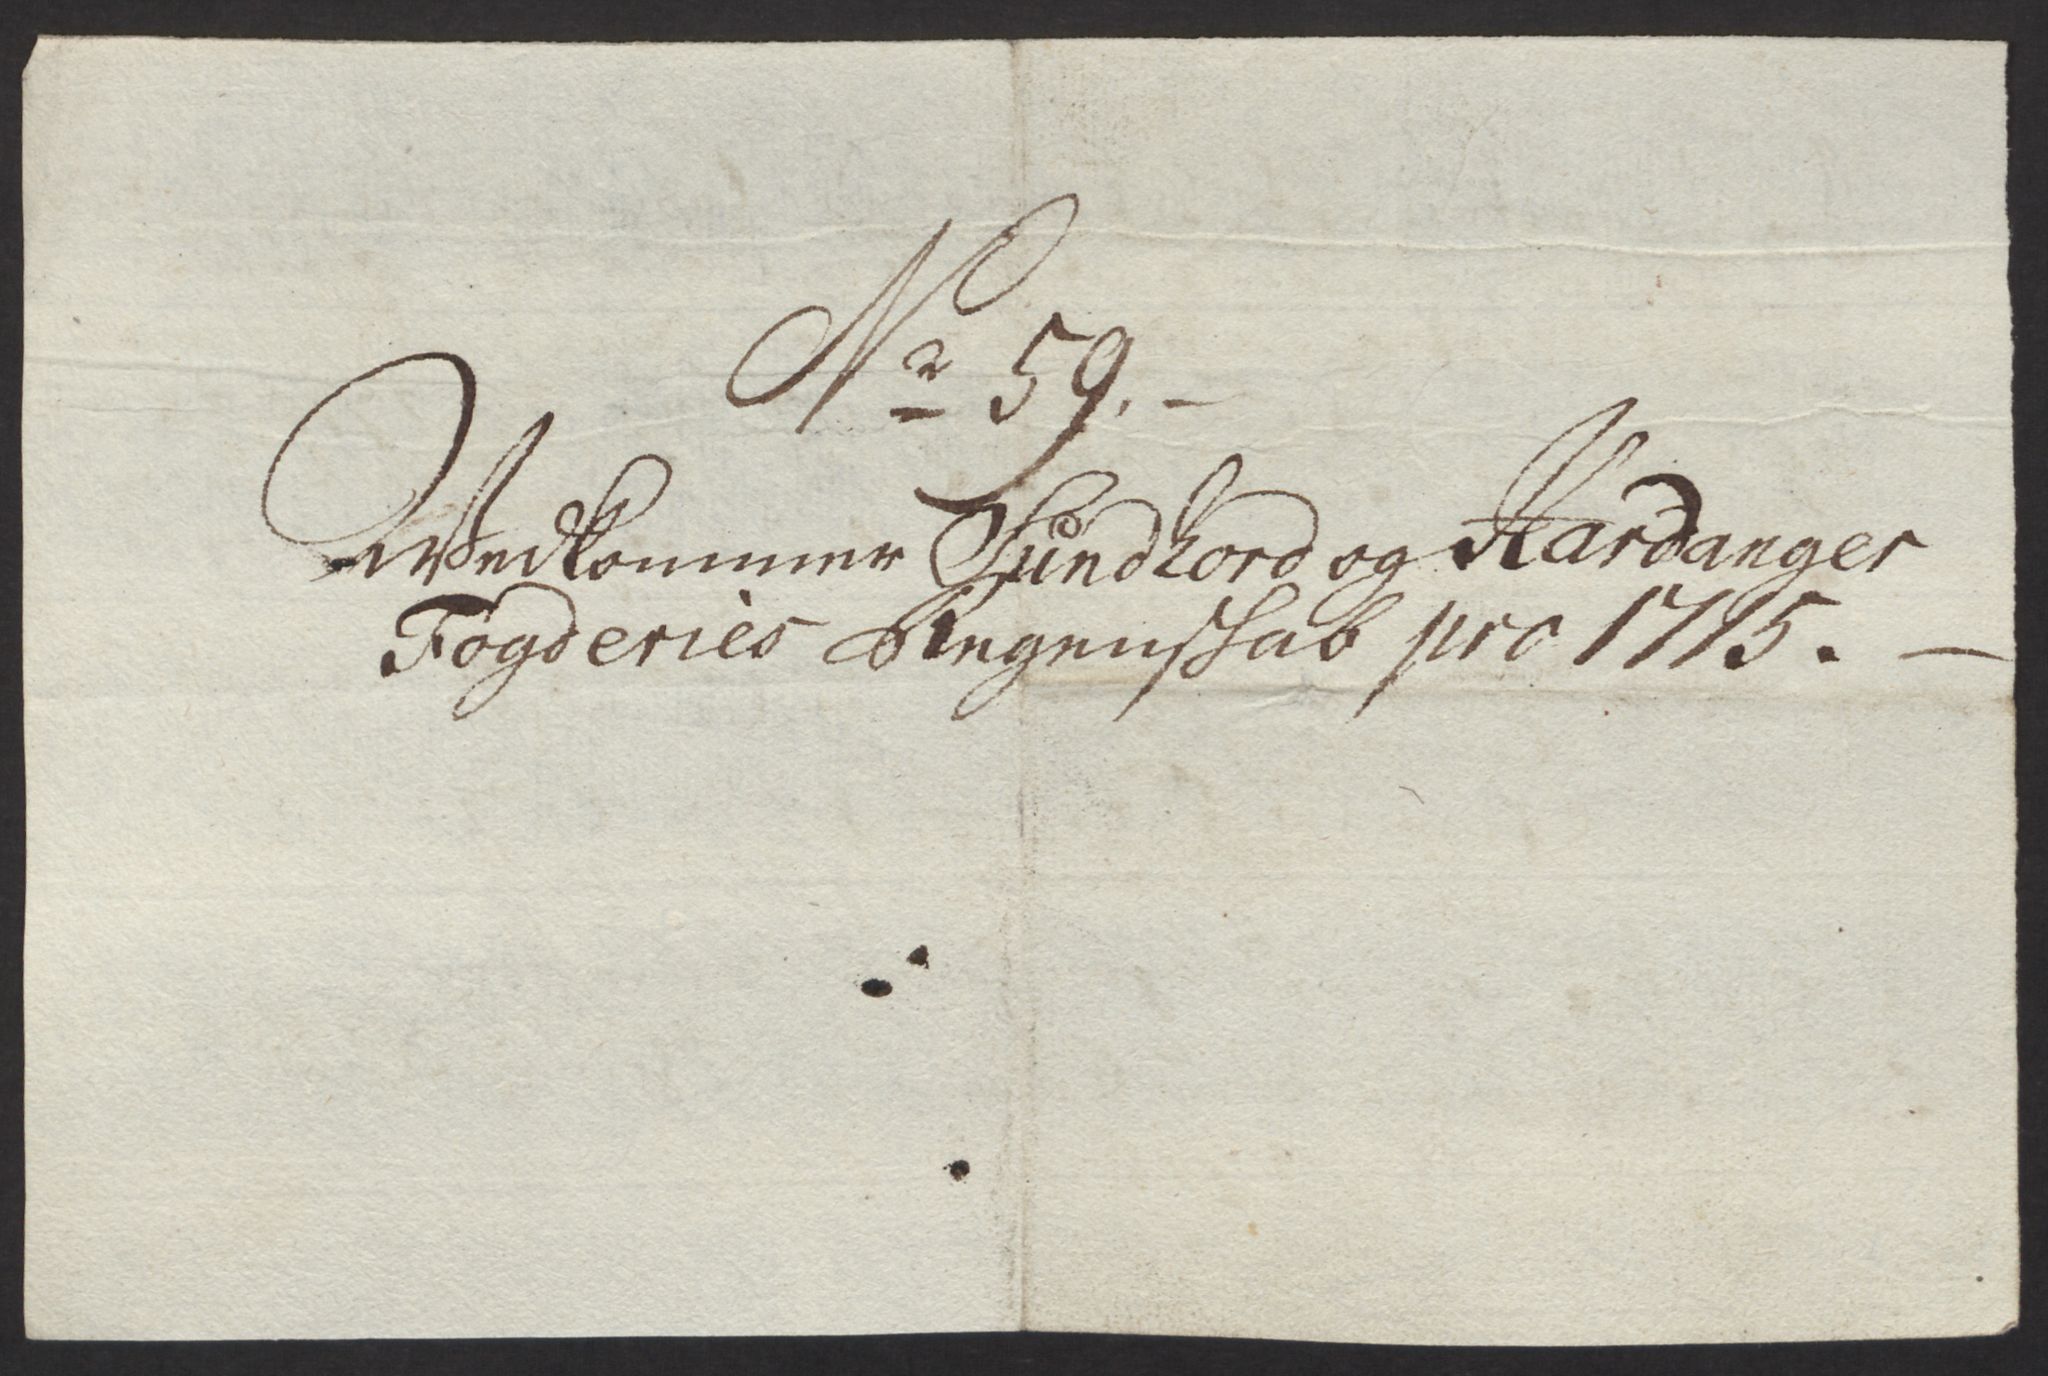 No 59. -
Wedkommer Sundhord og Hardanger
Fogderies Regenskab pro 1715. -